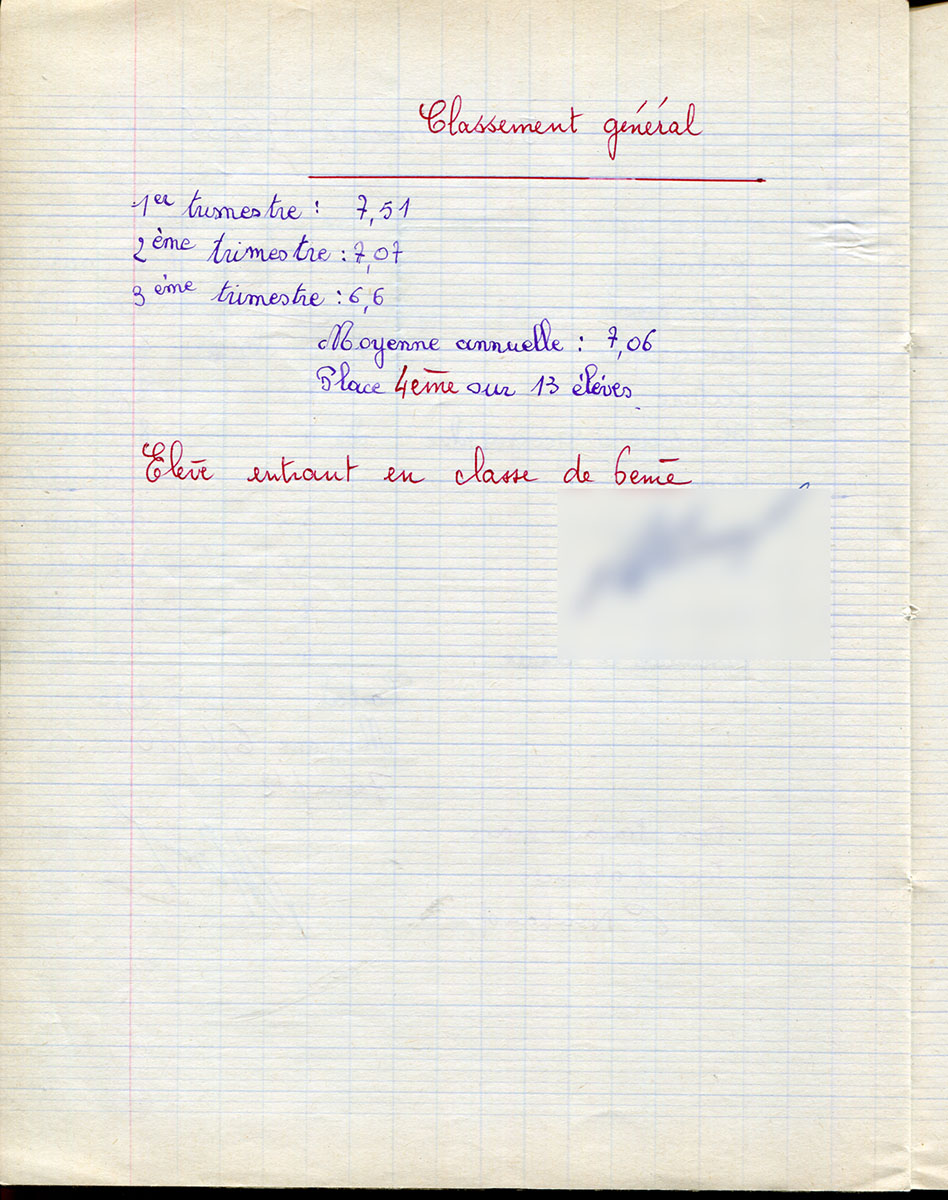 Classement général
1er trimestre : 7,51
2ème trimestre : 7,07
3ème trimestre : 6,6
Moyenne annuelle : 7,06
Place 4ème sur 13 élèves
Elève entrant en classe de 6ème